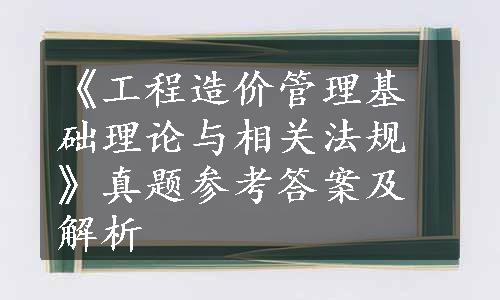 《工程造价管理基
础理论与相关法规
》真题参考答案及
解析